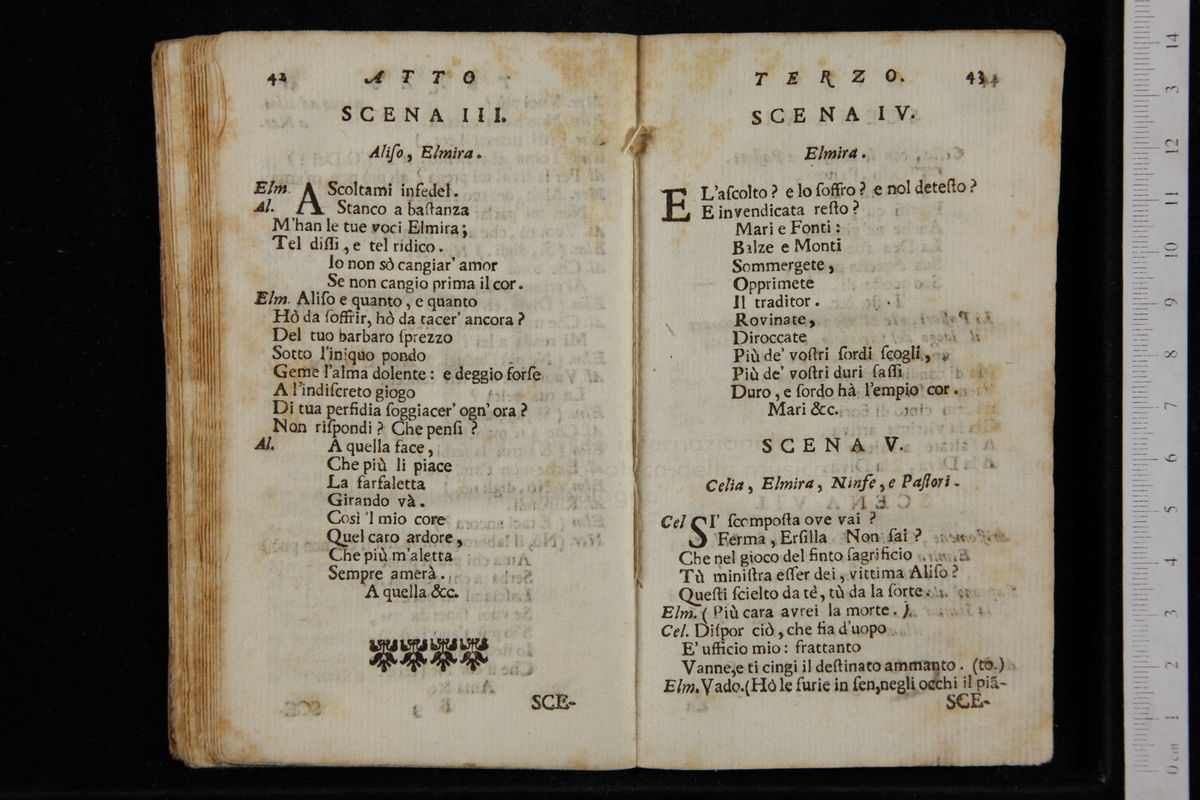 42 ATTO
SCENA III.
Aliſo, Elmira.
Elm. AScoltami infedel.
Al. Stanco a baſtanza
M'han le tue voci Elmira;
Tel diſſi, e tel ridico.
Io non sò cangiar' amor
Se non cangio prima il cor.
Elm. Aliſo e quanto, e quanto
Hò da ſoffrir, hò da tacer' ancora?
Del tuo barbaro ſprezzo
Sotto l'iniquo pondo
Geme l'alma dolente: e deggio forſe
A l'indiſcreto giogo
Di tua perfidia ſoggiacer' ogn' ora?
Non riſpondi? Che penſi?
Al. A quella face,
Che più li piace
La farfaletta
Girando và.
Così 'l mio core
Quel caro ardore,
Che più m'aletta
Sempre amerà.
A quella &c.
SCE-
TERZO. 43
SCENA IV.
Elmira.
EL'aſcolto? e lo ſoffro? e nol deteſto?
E invendicata reſto?
Mari e Fonti:
Balze e Monti
Sommergete,
Opprimete
Il traditor.
Rovinate,
Diroccate
Più de' voſtri ſordi ſcogli,
Più de' voſtri duri ſaſſi
Duro, e ſordo hà l'empio cor.
Mari &c.
SCENA V.
Celia, Elmira, Ninfe, e Paſtori.
Cel SI' ſcompoſta ove vai?
Ferma, Erſilla Non ſai?
Che nel gioco del finto ſagrificio
Tù miniſtra eſſer dei, vittima Aliſo?
Queſti ſcielto da tè, tù da la ſorte.
Elm. (Più cara avrei la morte.)
Cel. Diſpor ciò, che fia d'uopo
E' ufficio mio: frattanto
Vanne,e ti cingi il deſtinato ammanto. (to.)
Elm. Vado.(Hò le furie in ſen,negli occhi il piã-
SCE-